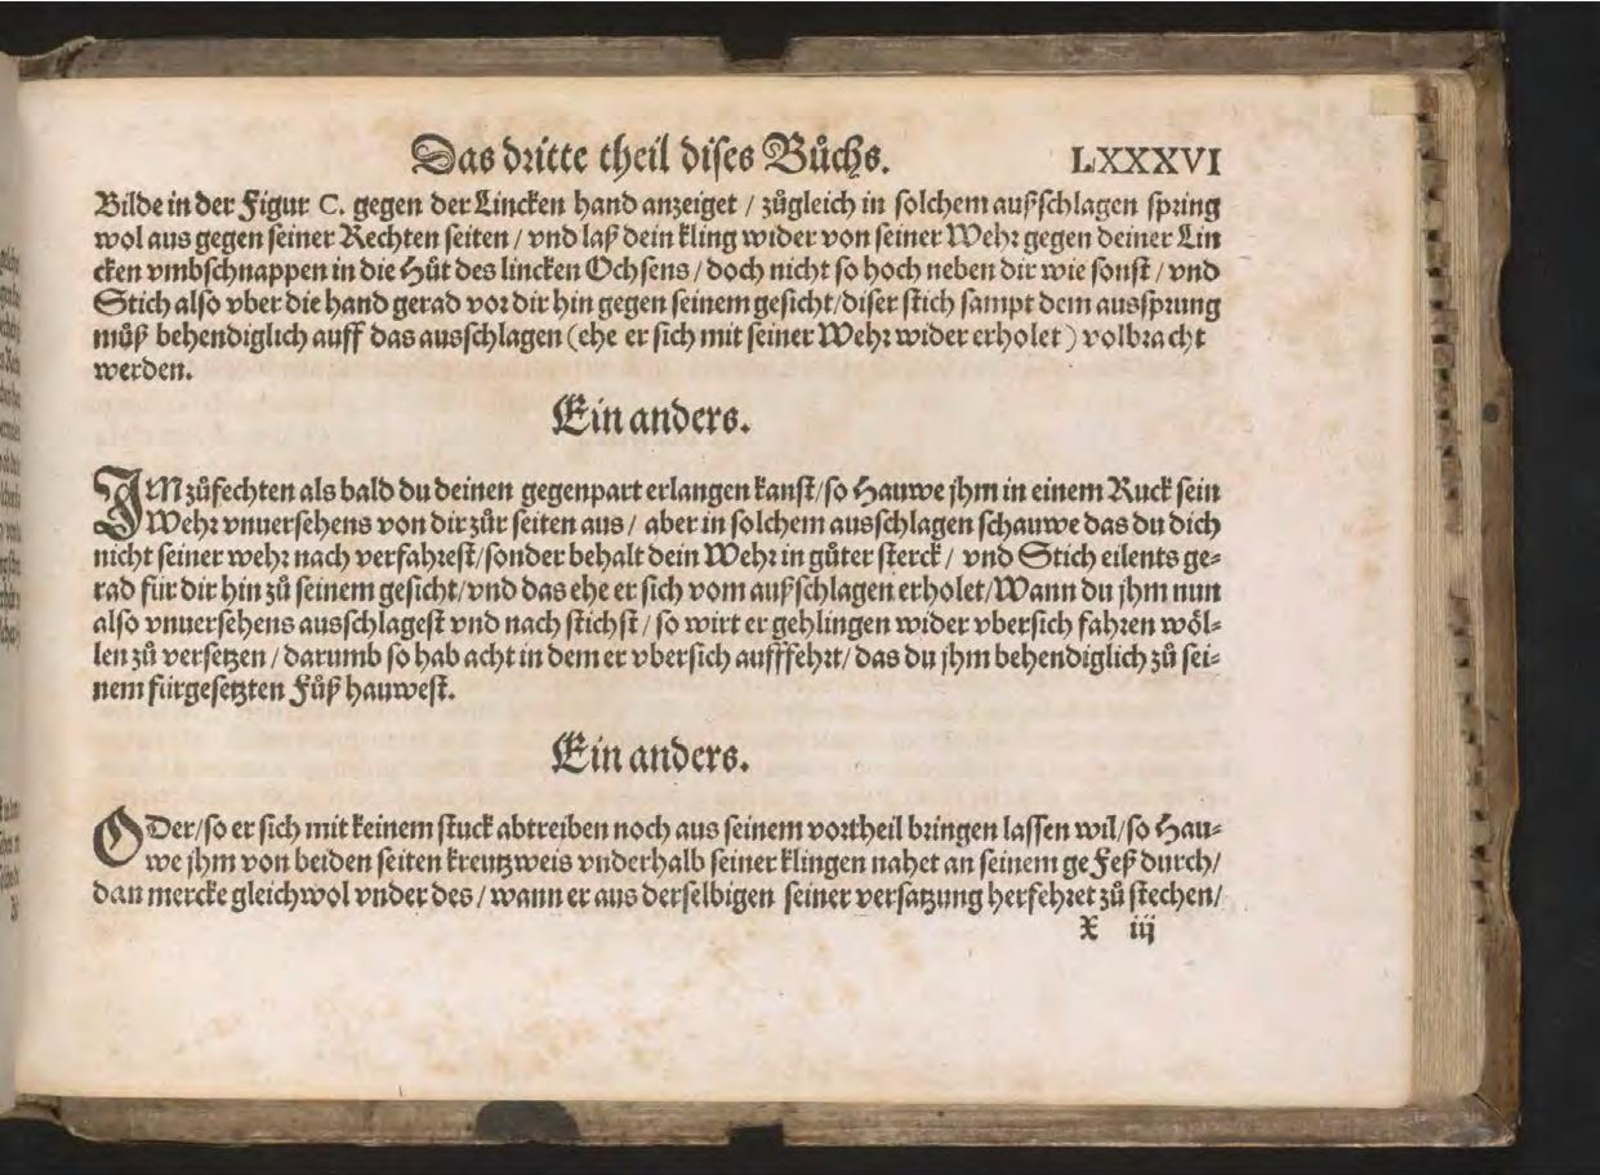 Das dritte theil dises Bůchs. LXXXVI
Bilde in der Figur C. gegen der Lincken hand anzeiget / zůgleich in solchem außschlagen spring
wol aus gegen seiner Rechten seiten / vnd laß dein kling wider von seiner Wehr gegen deiner Lin
cken vmbschnappen in die Hůt des lincken Ochsens / doch nicht so hoch neben dir wie sonst / vnd
Stich also vber die hand gerad vor dir hin gegen seinem gesicht / diser stich sampt dem aussprung
můß behendiglich auff das ausschlagen (ehe er sich mit seiner Wehr wider erholet) volbracht
werden.
Ein anders.
IM zůfechten als bald du deinen gegenpart erlangen kanst / so Hauwe jhm in einem Ruck sein
Wehr vnuersehens von dir zůr seiten aus / aber in solchem ausschlagen schauwe das du dich
nicht seiner wehr nach verfahrest / sonder behalt dein Wehr in gůter sterck / vnd Stich eilents ge⸗
rad für dir hin zů seinem gesicht / vnd das ehe er sich vom außschlagen erholet / Wann du jhm nun
also vnuersehens ausschlagest vnd nach stichst / so wirt er gehlingen wider vbersich fahren wöl⸗
len zů versetzen / darumb so hab acht in dem er vbersich aufffehrt / das du jhm behendiglich zů sei⸗
nem fürgesetzten Fůß hauwest.
Ein anders.
ODer / so er sich mit keinem stuck abtreiben noch aus seinem vortheil bringen lassen wil / so Hau⸗
we jhm von beiden seiten kreutzweis vnderhalb seiner klingen nahet an seinem geFeß durch /
dan mercke gleichwol vnder des / wann er aus derselbigen seiner versatzung herfehret zů stechen /
X iij